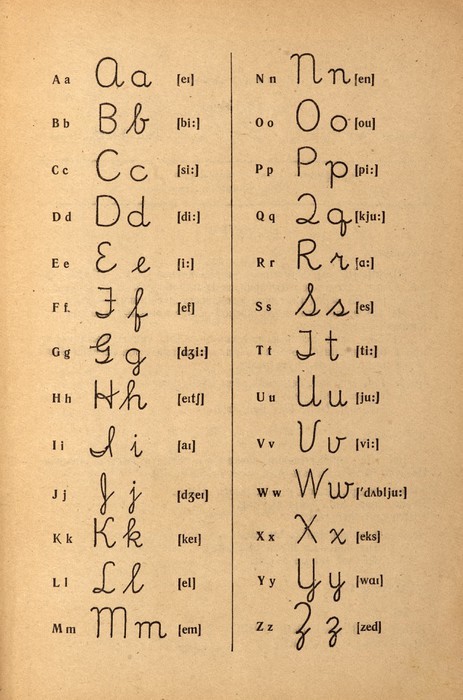 A a Aa [eı]
B b Bb [bi:]
C c Cc [si:]
D d Dd [di:]
E e Ee [i:]
F f. Ff [ef]
G g Gg [dʒi:]
H h Hh [eıtʃ]
I i Ii [aı]
J j Jj [dʒeı]
K k Kk [keı]
L l Ll [el]
M m Mm [em]
N n Nn [en]
O o Oo [ou]
P p Pp [pi:]
Q q Qq [kju:]
R r Rr [ɑ:]
S s Ss [es]
T t Tt [ti:]
U u Uu [ju:]
V v Vv [vi:]
W w Ww ['dʌblju:]
X x Xx [eks]
Y y Yy [waı]
Z z Zz [zed]